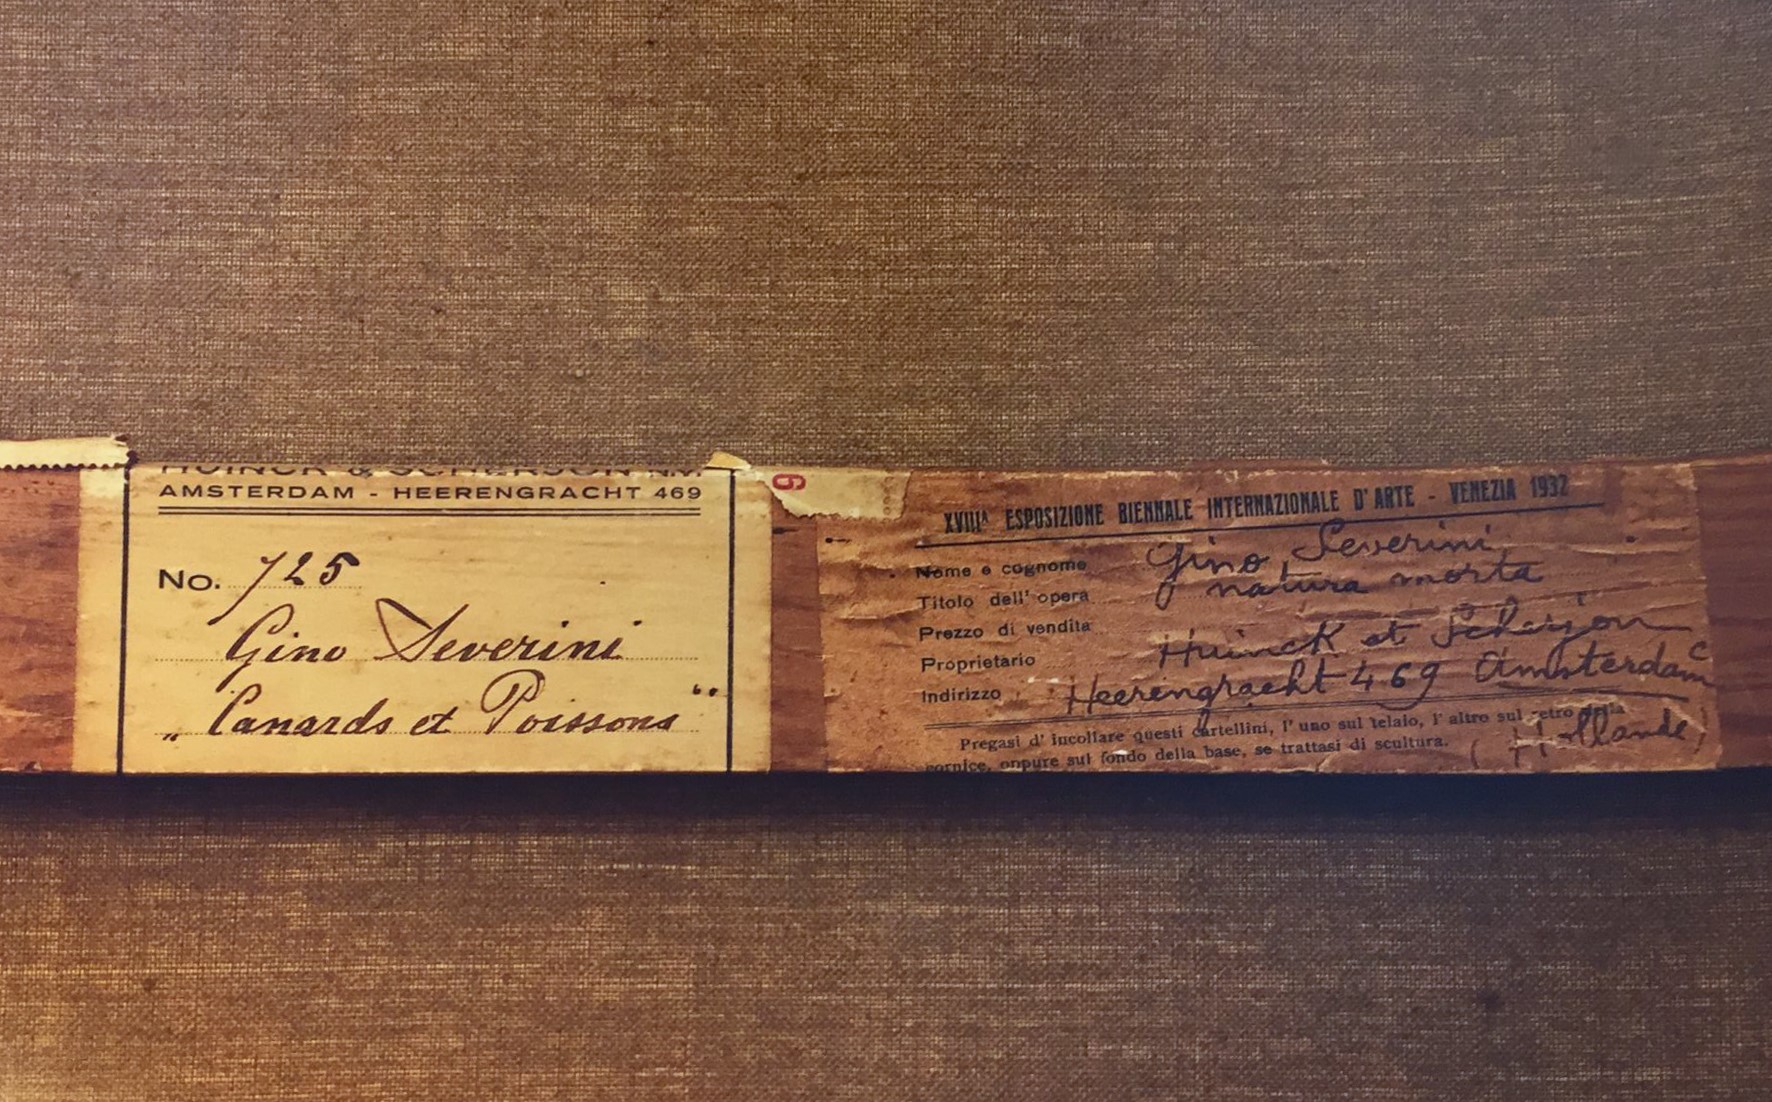 HUINCK & SCHERJON N.V.
AMSTERDAM - HEERENGRACHT 469
No. 725
Gino Severini
„ Canards et Poissons “
6
XVIIIᴬ ESPOSIZIONE BIENNALE INTERNAZIONALE D'ARTE - VENEZIA 1932
Nome e cognome Gino Severini
Titolo dell' opera natura morta
Prezzo di vendita
Proprietario Huinck et Scherjon
Indirizzo Heerengracht 469 Amsterdam
(Hollande)
Pregasi d' incollare questi cartellini, l' uno sul telaio, l' altro sul retro della
cornice, oppure sul fondo della base, se trattasi di scultura.